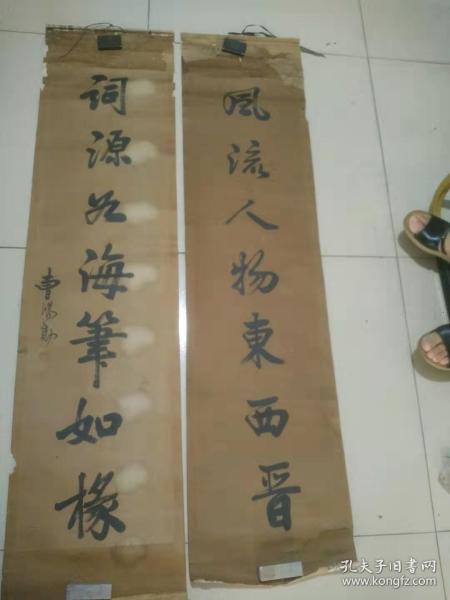 風流人物東西晉
詞源若海筆如椽
曹鴻勛
孔夫子旧书网
www.kongfz.com